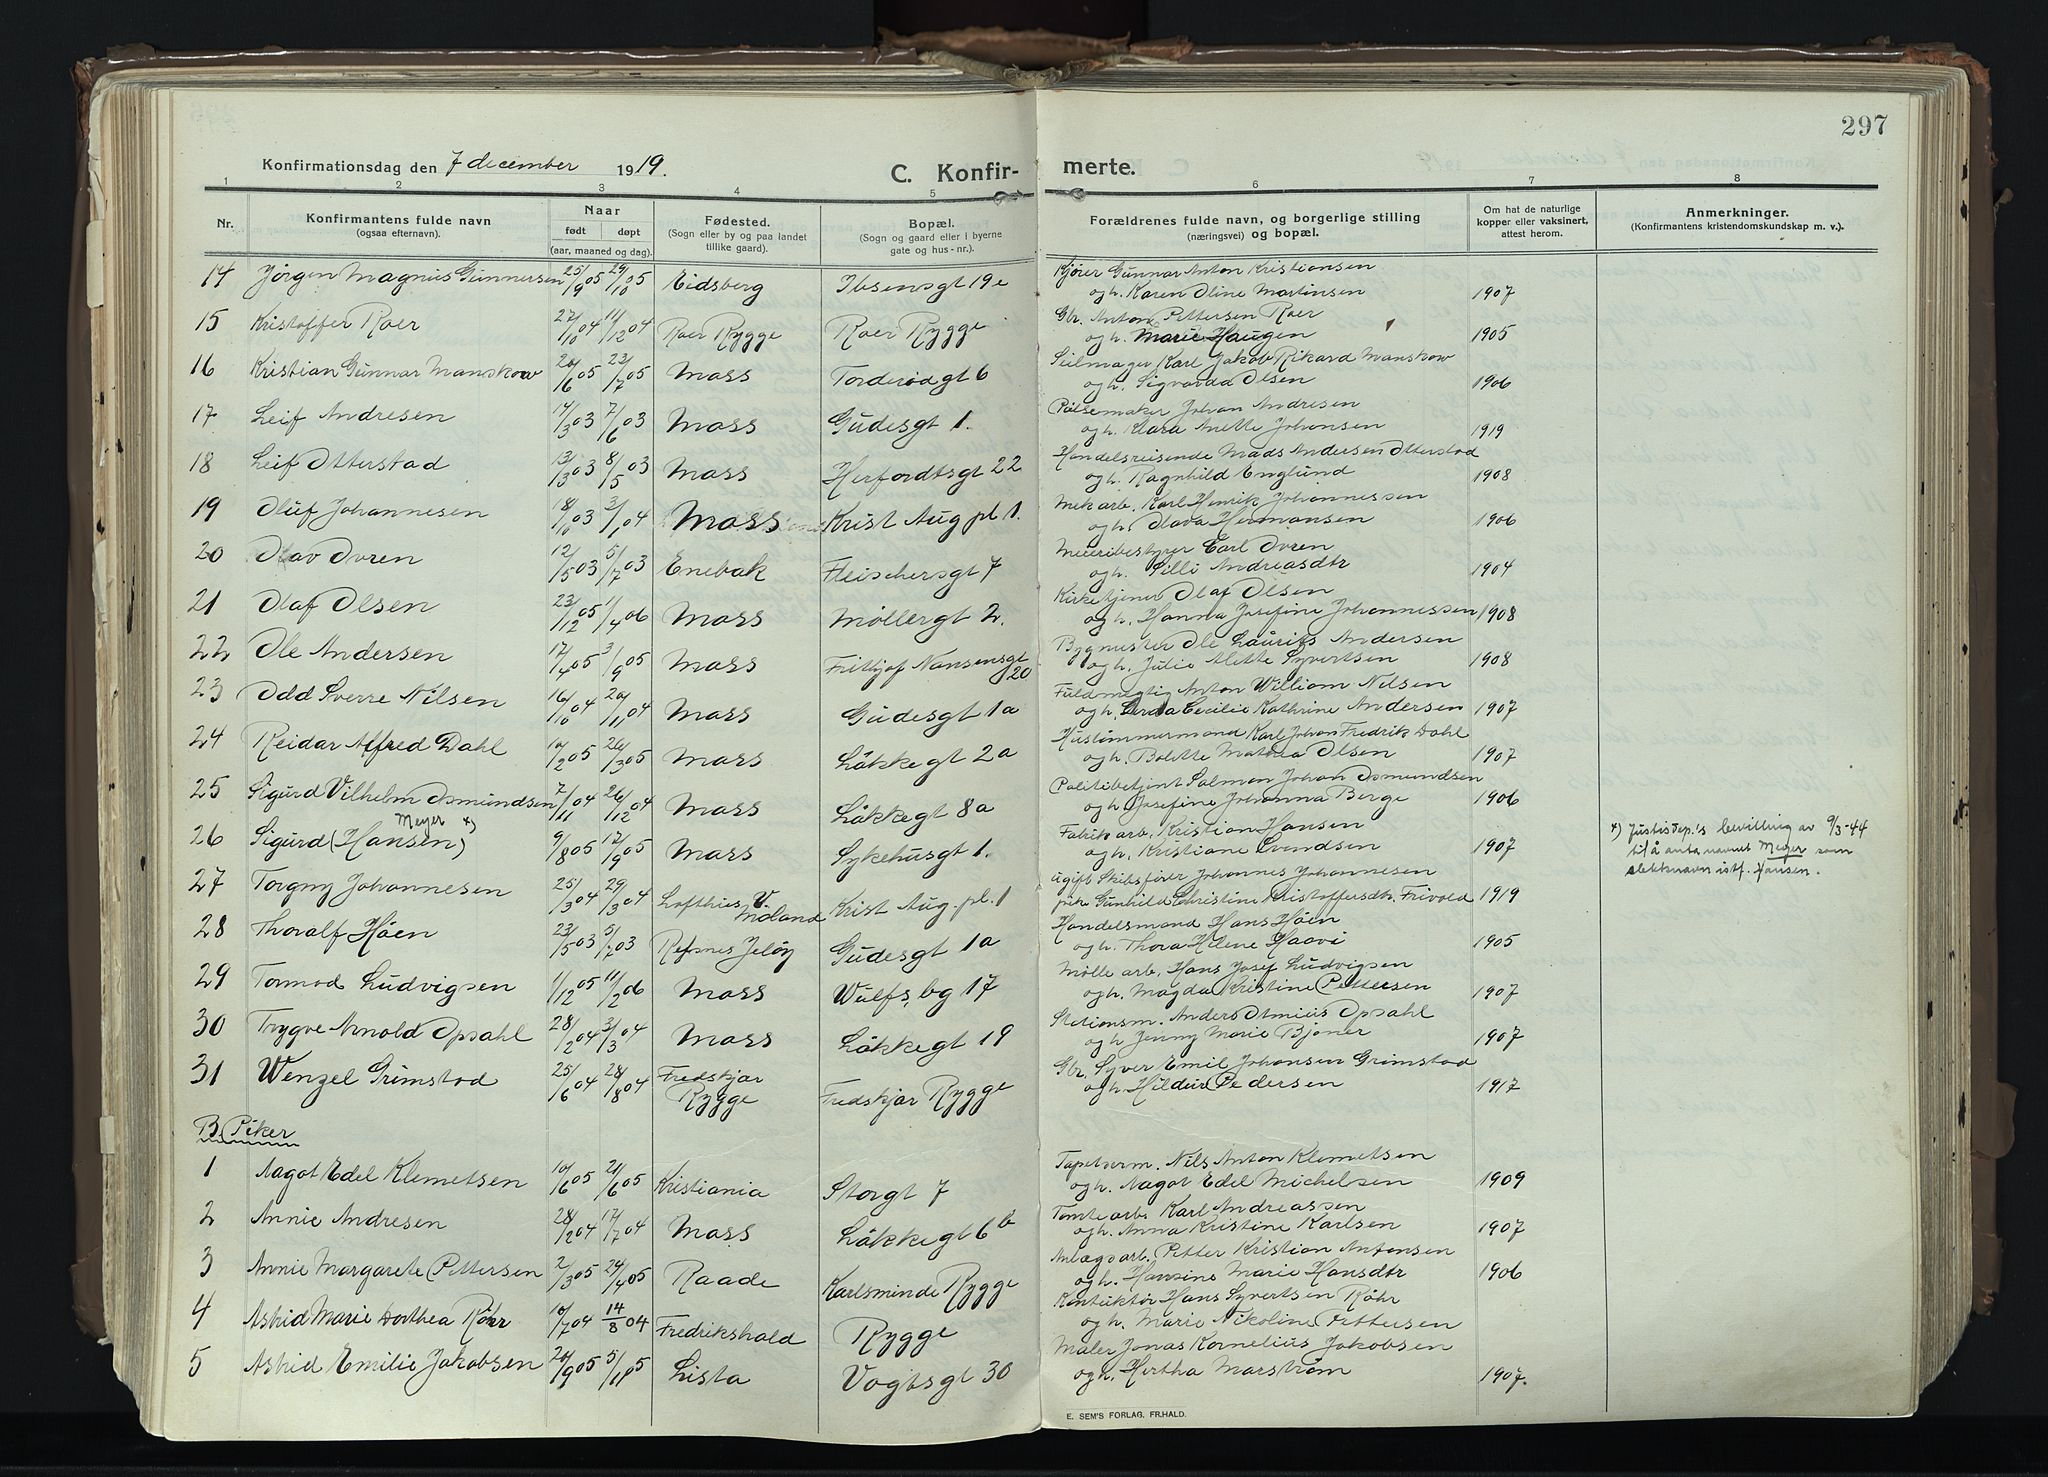 297
Konfirmationsdag den 7 december 1919.
C. Konfir-
merte.
1 2 3 4 5 6 7 8
Nr.
Konfirmantens fulde navn
(ogsaa efternavn).
Naar
født døpt
(aar, maaned og dag).
Fødested.
(Sogn eller by og paa landet
tillike gaard).
Bopæl.
(Sogn og gaard eller i byerne
gate og hus-nr.).
Forældrenes fulde navn, og borgerlige stilling
(næringsvei) og bopæl.
Om hat de naturlige
kopper eller vaksinert,
attest herom.
Anmerkninger.
(Konfirmantens kristendomskundskap m. v.).
14 Jørgen Magnus Gunnersen 25/9 05 29/10 05 Eidsberg Ibsensgt 19e Kjører Gunnar Anton Kristiansen
og h. Karen Oline Martinsen 1907
15 Kristoffer Roer 27/10 04 11/12 04 Roer Rygge Roer Rygge Gbr. Anton Pettersen Roer
og h. Marie Haugen 1905
16 Kristian Gunnar Manskow 20/6 05 23/7 05 Moss Torderødgt 6 Seilmager Karl Jakob Rikard Manskow
og h. Sigvarda Olsen 1906
17 Leif Andresen 14/3 03 7/6 03 Moss Gudesgt 1. Pølsemaker Johan Andresen
og h. Klara Anette Johansen 1919
18 Leif Otterstad 13/3 03 8/5 03 Moss Herfordtsgt 22 Handelsreisende Mads Andersen Otterstad
og h. Ragnhild Englund 1908
19 Oluf Johannesen 18/10 03 3/1 04 Moss Krist Aug pl 1. Mek arb. Karl Henrik Johannessen
og h. Olava Hermansen 1906
20 Olav Ovren 12/5 03 5/7 03 Enebak Fleischersgt 7 Meieribestyrer Carl Ovren
og h. Pilli Andreasdtr 1904
21 Olaf Olsen 23/12 05 1/4 06 Moss Møllergt 2. Kirketjener Olaf Olsen
og h. Hanna Josefine Johannessen 1908
22 Ole Andersen 17/4 05 3/9 05 Moss Frithjof Nansensgt 20 Bygmester Ole Laurits Andersen
og h. Julie Alette Syvertsen 1908
23 Odd Sverre Nilsen 16/10 04 20/11 04 Moss Gudesgt 1a Fuldmegtig Anton William Nilsen
og h. Cecilie Kathrine Andersen 1907
24 Reidar Alfred Dahl 10/2 05 26/3 05 Moss Løkkegt 2a Hustømmermand Karl Johan Fredrik Dahl
og h. Bolette Mathea Olsen 1907
25 Sigurd Vilhelm Osmundsen 7/11 04 26/12 04 Moss Løkkegt 8a Politibetjent Salmon Johan Osmundsen
og h. Josefine Johanna Berge 1906
Meyer x)
26 Sigurd (Hansen) 9/8 05 17/9 05 Moss Sykehusgt 1. Fabrik arb. Kristian Hansen
og h. Kristiane Svendsen 1907
x) Justisdep.'s bevilling av 9/3-44
til å anta navnet Meyer som
slektnavn istf. Hansen.
27 Torgny Johannesen 25/3 04 29/3 04 V. Moland Krist Aug. pl. 1 ugift Skibsfører Johannes Johannesen
pike Gunhild Christine Kristoffersdtr. Frivold 1919
28 Thoralf Høen 23/5 03 5/7 03 Refsnes Jeløy Gudesgt 1a Handelsmand Hans Høen
og h. Thora Helene Haavi 1905
29 Tormod Ludvigsen 1/12 05 11/2 06 Moss Wulfsbg 17 Mølle arb. Hans Josef Ludvigsen
og h. Magda Kristine Pettersen 1907
30 Trygve Arnold Opsahl 28/2 04 3/3 04 Moss Løkkegt 19 Stationsm. Anders Opsahl
og h Jenny Marie Bjøner 1907
31 Wenzel Grimstad 25/6 04 28/8 04 Fredskjær Rygge Fredskjær Rygge Gbr. Syver Emil Johansen Grimstad
og h. Hildur Pedersen 1917
B. Piker
1 Aagot Edel Klemetsen 10/6 05 21/6 05 Kristiania Storgt 7 Tapetserm. Nils Anton Klemetsen
og h. Aagot Edel Michelsen 1909
2 Annie Andresen 28/2 04 17/7 04 Moss Løkkegt 6b Tomtearb. Karl Andreassen
og h. Anna Kristine Karlsen 1907
3 Annie Margarete Pettersen 2/3 05 24/4 05 Raade Karlsminde Rygge Anlægsarb. Petter Kristian Antonsen
og h. Hansine Marie Hansdtr 1906
4 Astrid Marie Dorthea Röhr 10/7 04 14/8 04 Fredrikshald Rygge Konduktør Hans Syvertsen Röhr
og h. Marie Nikoline Pettersen
5 Astrid Emilie Jakobsen 20/9 05 5/11 05 Lista Vogtsgt 30 Maler Jonas Kornelius Jakobsen
og h. Hertha Marstrøm 1907.
E. SEM'S FORLAG, FR.HALD.